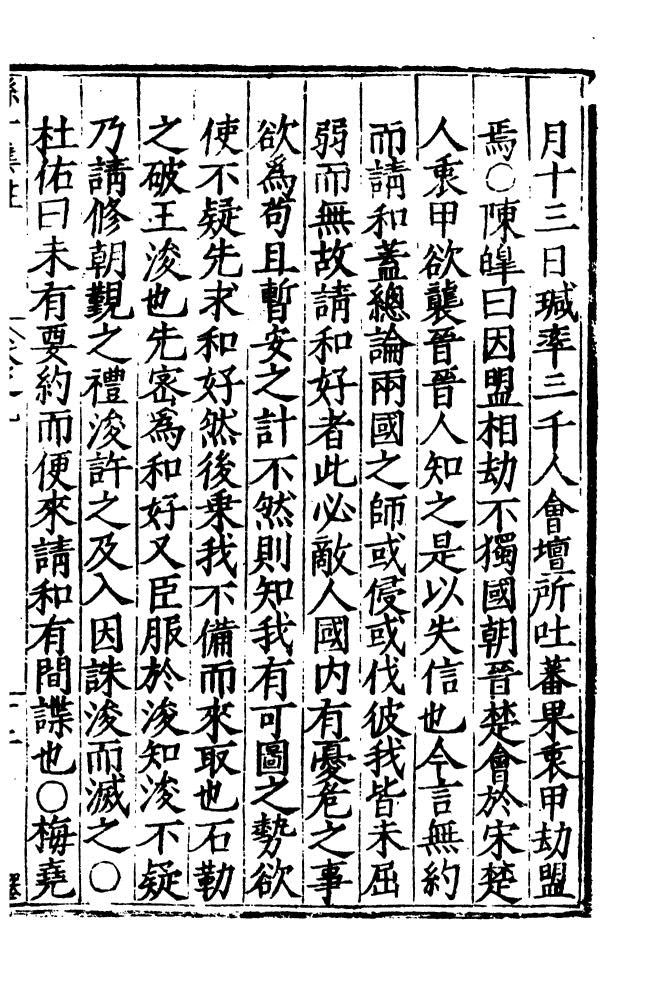 月十三日瑊率三千人會壇所吐蕃果衷甲劫盟
焉○陳皥曰因盟相劫不獨國朝晉楚會於宋楚
人衷甲欲襲晉晉人知之是以失信也今言無約
而請和蓋總論兩國之師或侵或伐彼我皆未屈
弱而無故請和好者此必敵人國内有憂危之事
欲爲苟且暫安之計不然則知我有可圖之勢欲
使不疑先求和好然後乗我不備而來取也石勒
之破王浚也先宻爲和好又臣服於浚知浚不疑
乃請修朝覲之禮浚許之及入因誅浚而滅之○
杜佑曰未有要約而便來請和有間諜也○梅堯